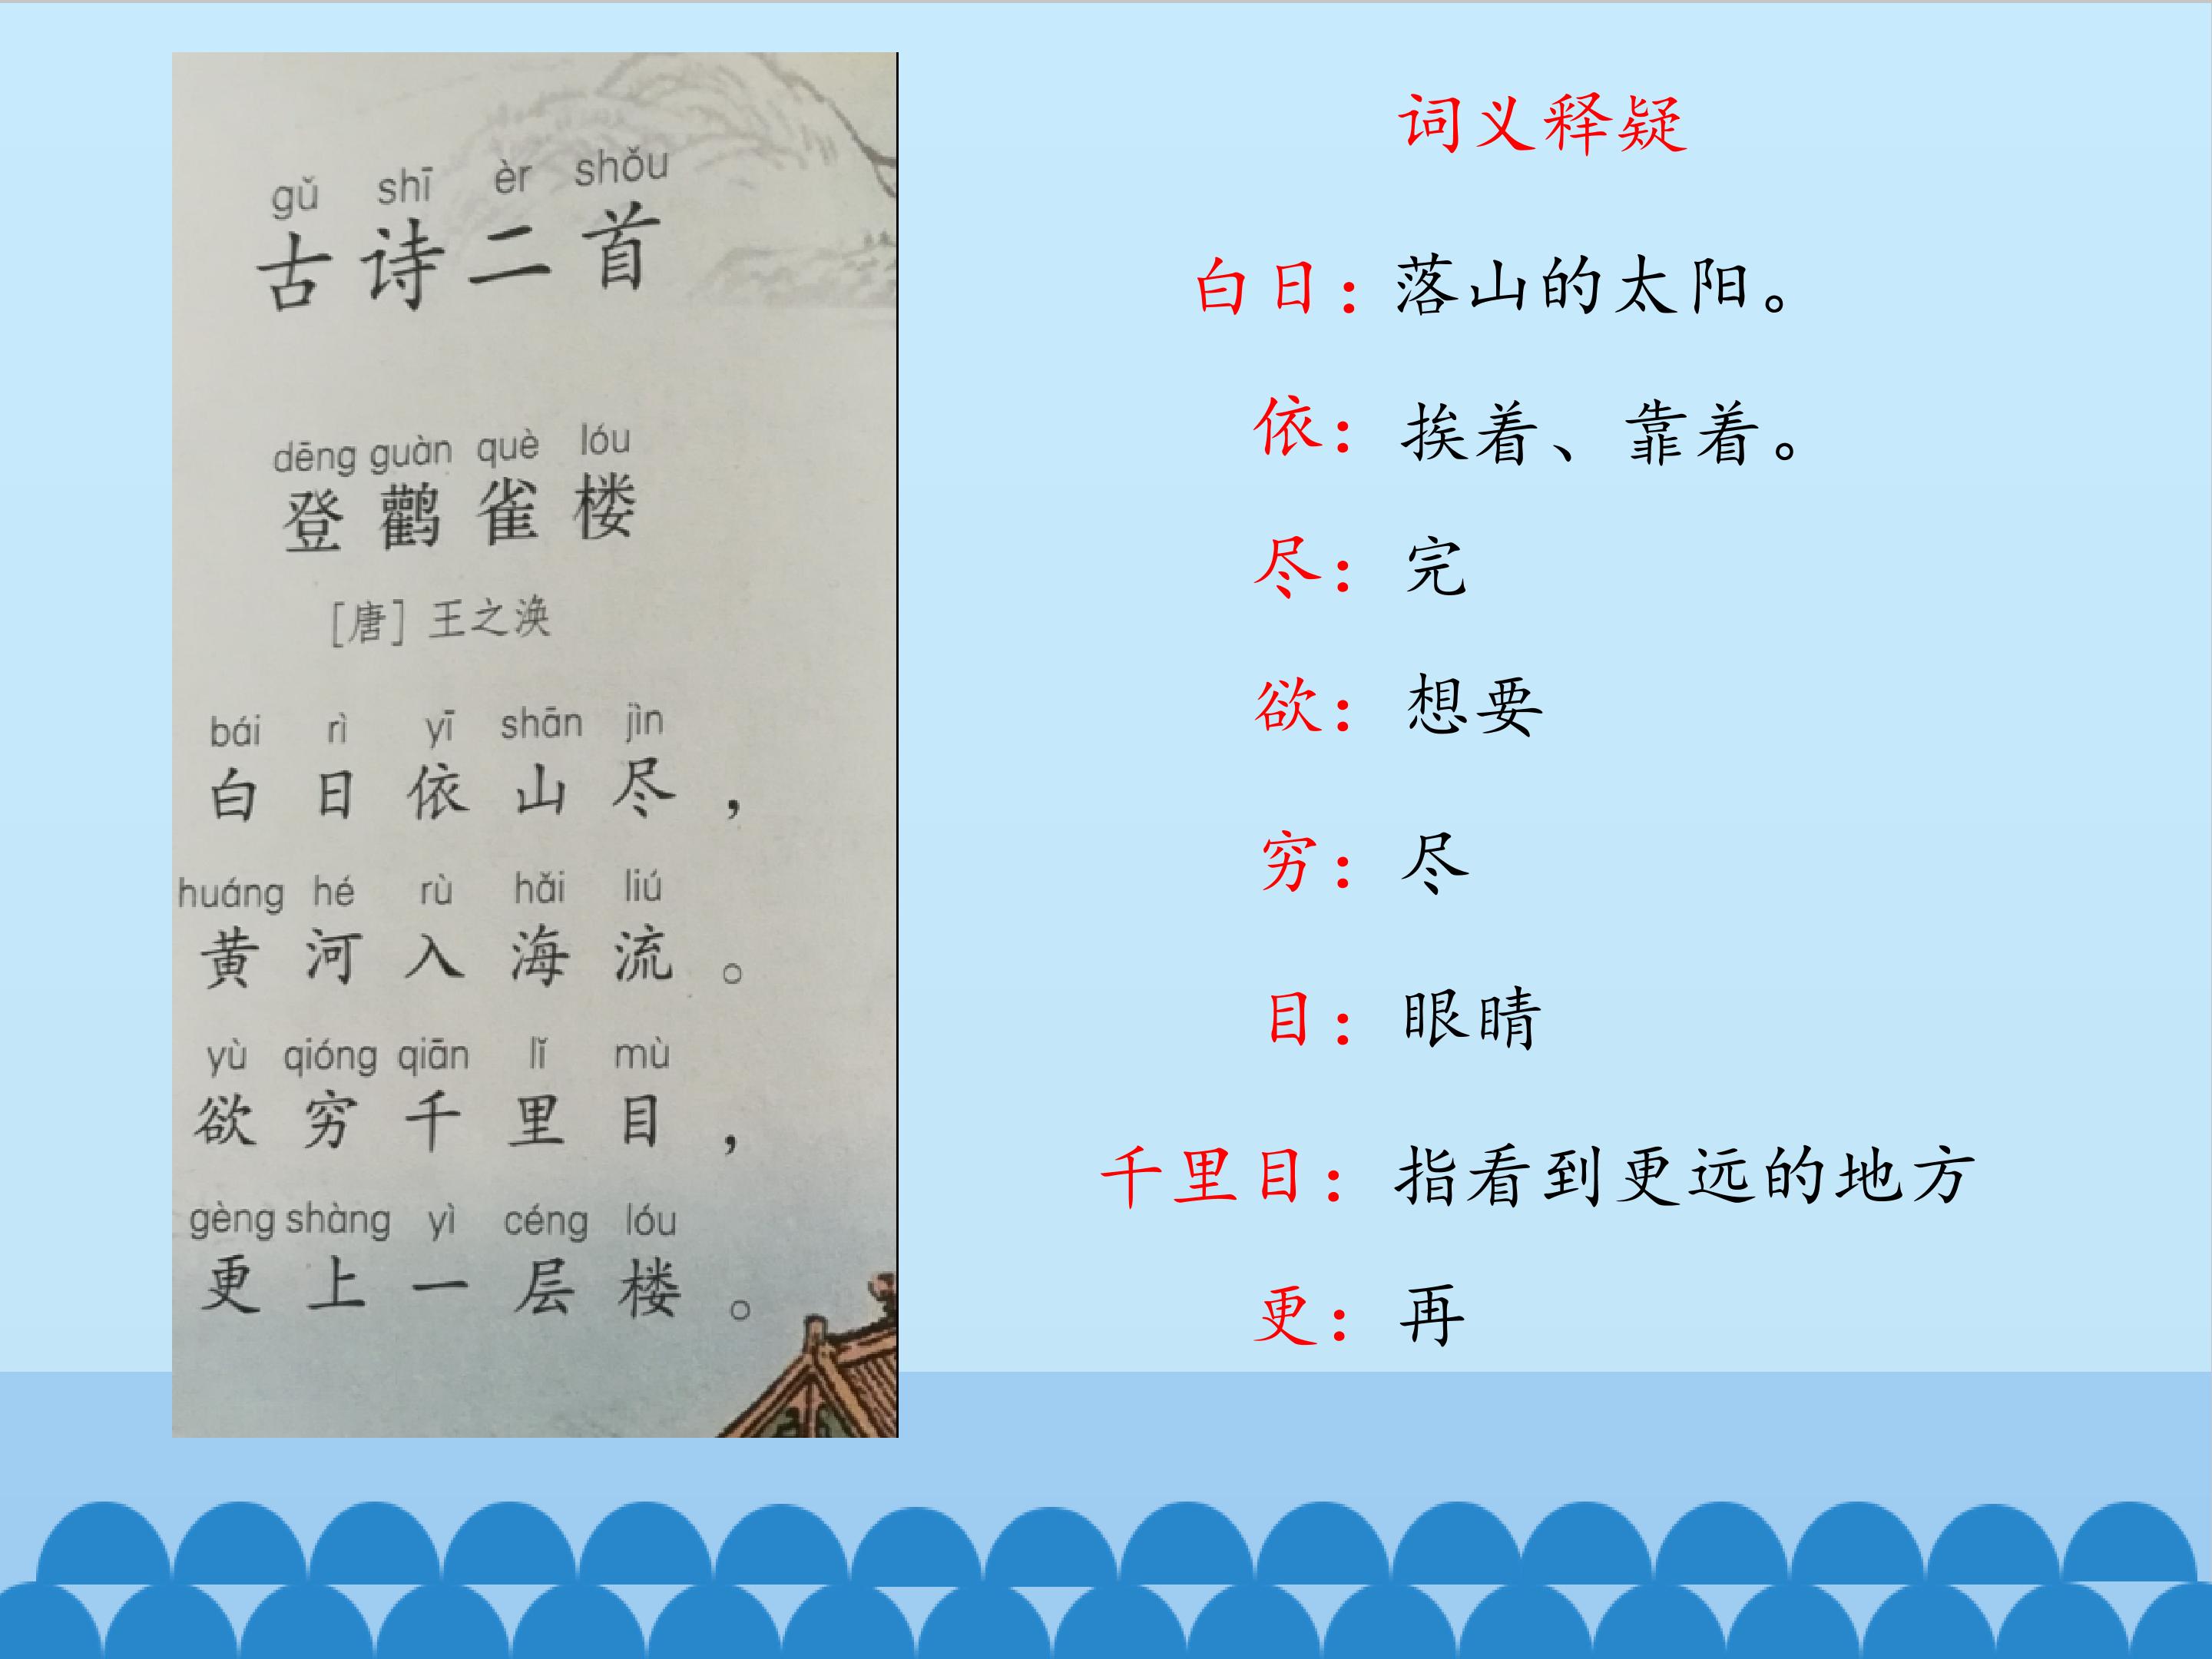 gǔ shī èr shǒu
古诗二首
dēng guàn què lóu
登鹳雀楼
[唐] 王之涣
bái rì yī shān jìn
白日依山尽，
huáng hé rù hǎi liú
黄河入海流。
yù qióng qiān lǐ mù
欲穷千里目，
gèng shàng yì céng lóu
更上一层楼。
词义释疑
白日：落山的太阳。
依：挨着、靠着。
尽：完
欲：想要
穷：尽
目：眼睛
千里目：指看到更远的地方
更：再